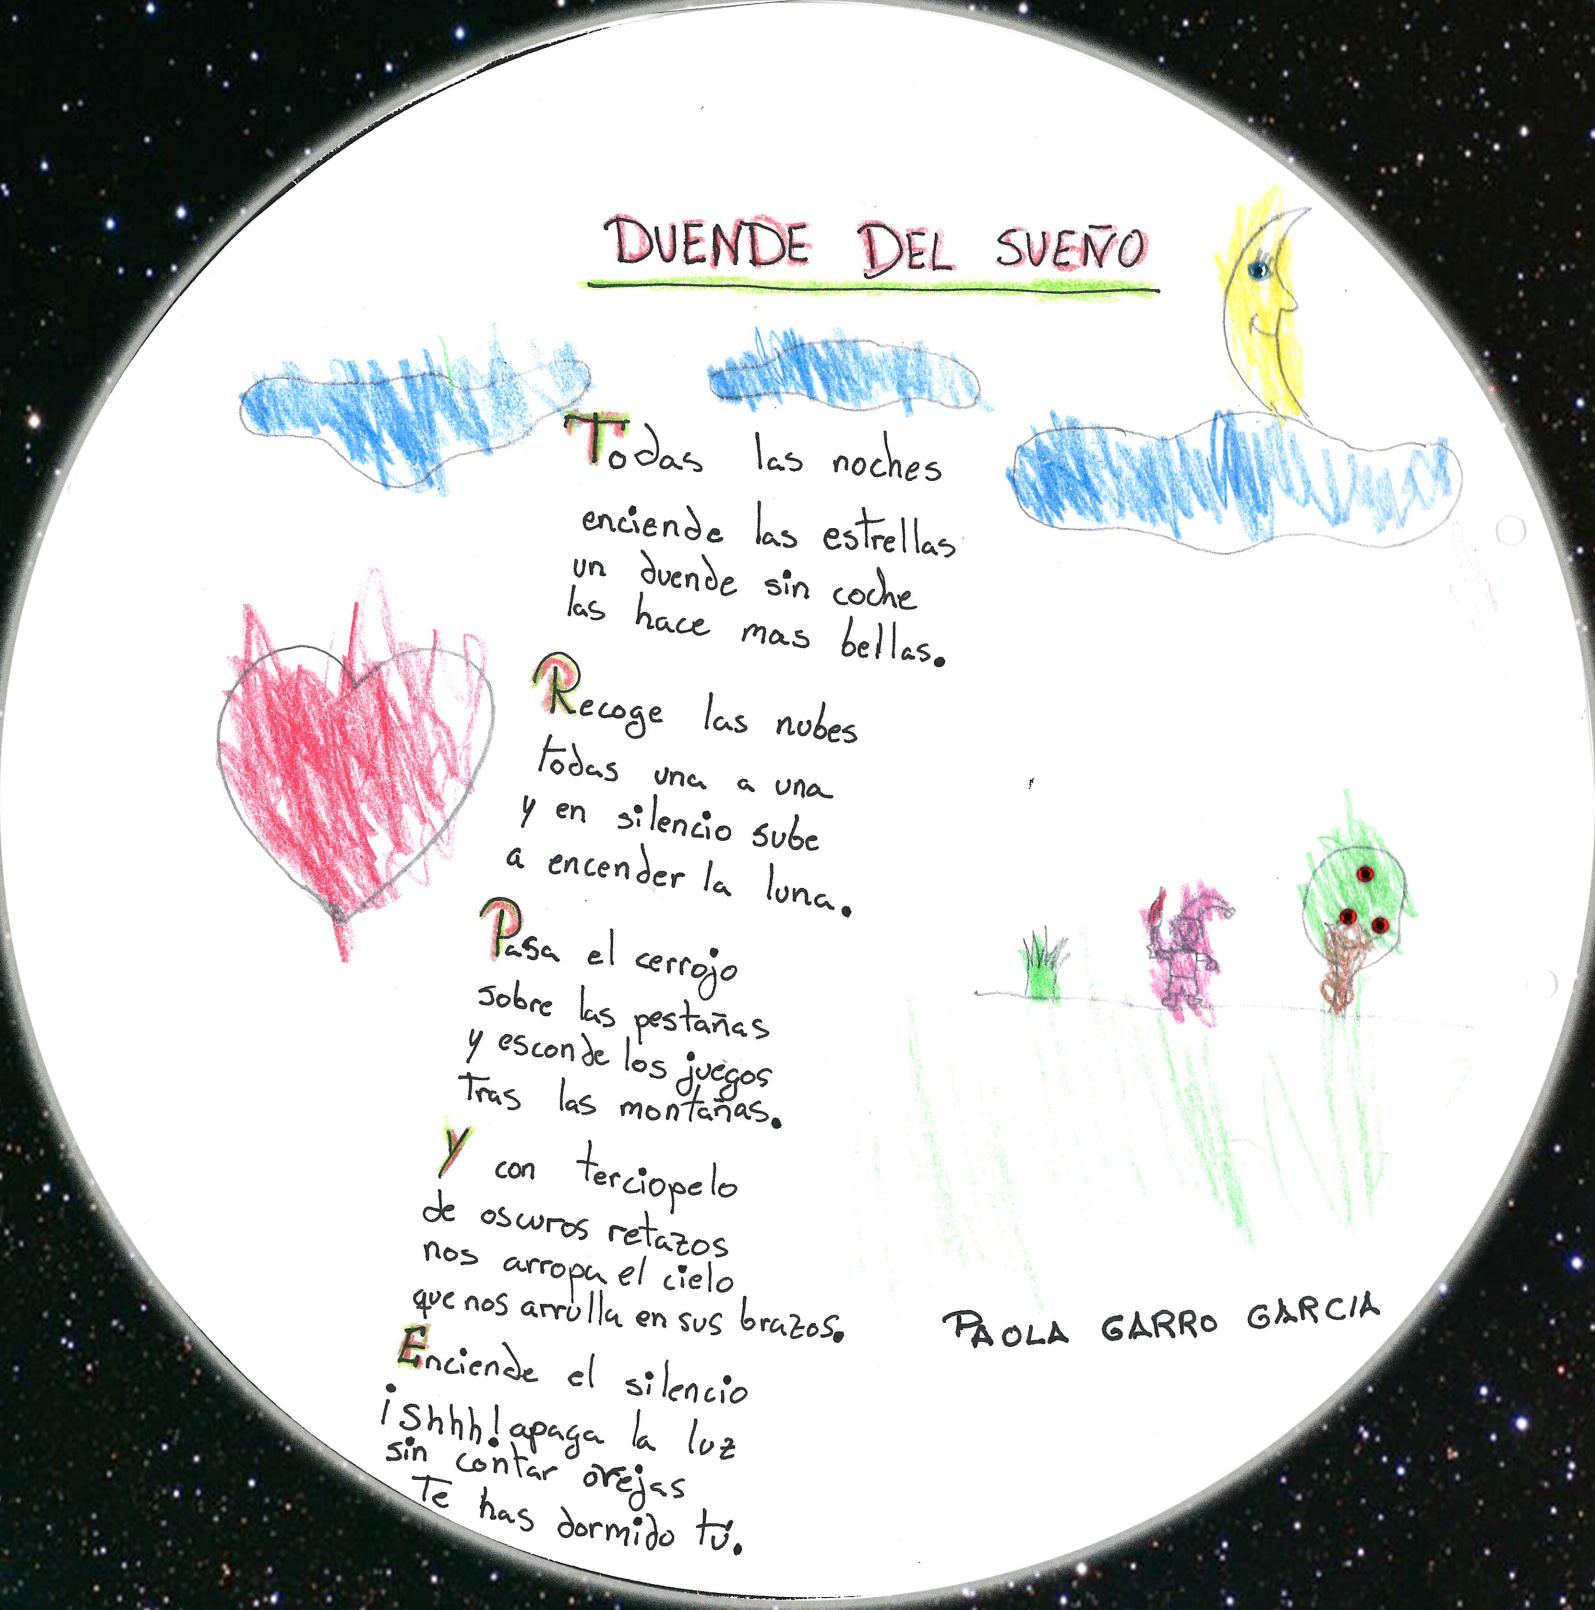 DUENDE DEL SUEÑO
Todas las noches
enciende las estrellas
un duende sin coche
las hace mas bellas.
Recoge las nubes
todas una a una
y en silencio sube
a encender la luna.
Pasa el cerrojo
sobre las pestañas
y esconde los juegos
tras las montañas.
Y con terciopelo
de oscuros retazos
nos arropa el cielo
que nos arrulla en sus brazos.
Enciende el silencio
¡Shhh! apaga la luz
sin contar ovejas
Te has dormido tú.
PAOLA GARRO GARCIA